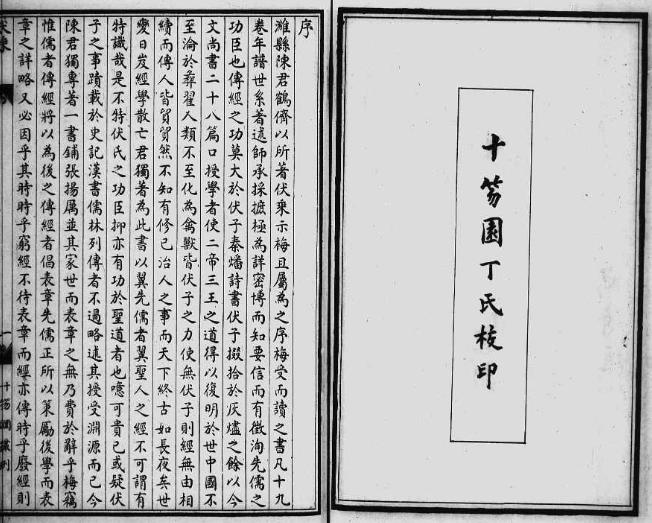 十笏園丁氏校印
序
濰縣陳君鶴儕以所著伏乘示梅且屬為之序梅受而讀之書凡十九
卷年譜世系著述師承採摭極為詳密博而知要信而有徵洵先儒之
功臣也傳經之功莫大於伏子秦燔詩書伏子掇拾於灰燼之餘以今
文尚書二十八篇口授學者使二帝三王之道得以復明於世中國不
至淪於彝翟人類不至化為禽獸皆伏子之力使無伏子則經無由相
續而傳人皆貿貿然不知有修己治人之事而天下終古如長夜矣世
變日岌經學散亡君獨著為此書以翼先儒者翼聖人之經不可謂有
特識哉是不特伏氏之功臣抑亦有功於聖道者也噫可貴已或疑伏
子之事蹟載於史記漢書儒林列傳者不過略述其授受淵源而已今
陳君獨專著一書鋪張揚厲並其家世而表章之無乃費於辭乎梅竊
惟儒者傳經將以為後之傳經者倡表章先儒正所以策勵後學而表
章之詳略又必因乎其時時乎窮經不待表章而經亦傳時乎廢經則
一